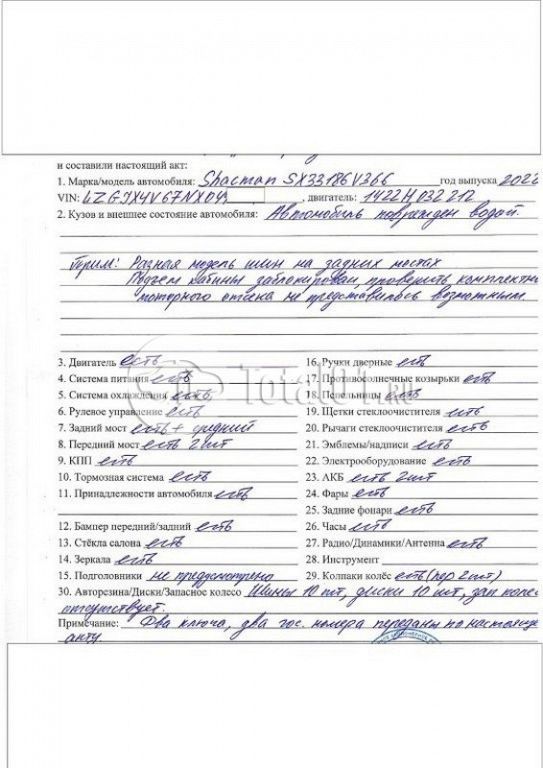 и составили настоящий акт:
1. Марка/модель автомобиля: Shacman SX33186V366 год выпуска 2022
VIN: LZGJX4V67NX049 , двигатель: 1422H032212
2. Кузов и внешнее состояние автомобиля: Автомобиль поврежден водой.
Прим: Разная модель шин на задних мостах
Подъем кабины заблокирован, проверить комплектн
моторного отсека не представилось возможным.
3. Двигатель есть
4. Система питания есть
5. Система охлаждения есть
6. Рулевое управление есть
7. Задний мост есть + средний
8. Передний мост есть 2 шт
9. КПП есть
10. Тормозная система есть
11. Принадлежности автомобиля есть
12. Бампер передний/задний есть
13. Стёкла салона есть
14. Зеркала есть
15. Подголовники не предусмотрено
16. Ручки дверные есть
17. Противосолнечные козырьки есть
18. Пепельницы есть
19. Щетки стеклоочистителя есть
20. Рычаги стеклоочистителя есть
21. Эмблемы/надписи есть
22. Электрооборудование есть
23. АКБ есть 2 шт
24. Фары есть
25. Задние фонари есть
26. Часы есть
27. Радио/Динамики/Антенна есть
28. Инструмент
29. Колпаки колёс есть (пер 2 шт)
30. Авторезина/Диски/Запасное колесо Шины 10 шт, диски 10 шт, зап колес
отсутствует.
Примечание: Два ключа, два гос. номера переданы по настояще
акту.
Total01.ru